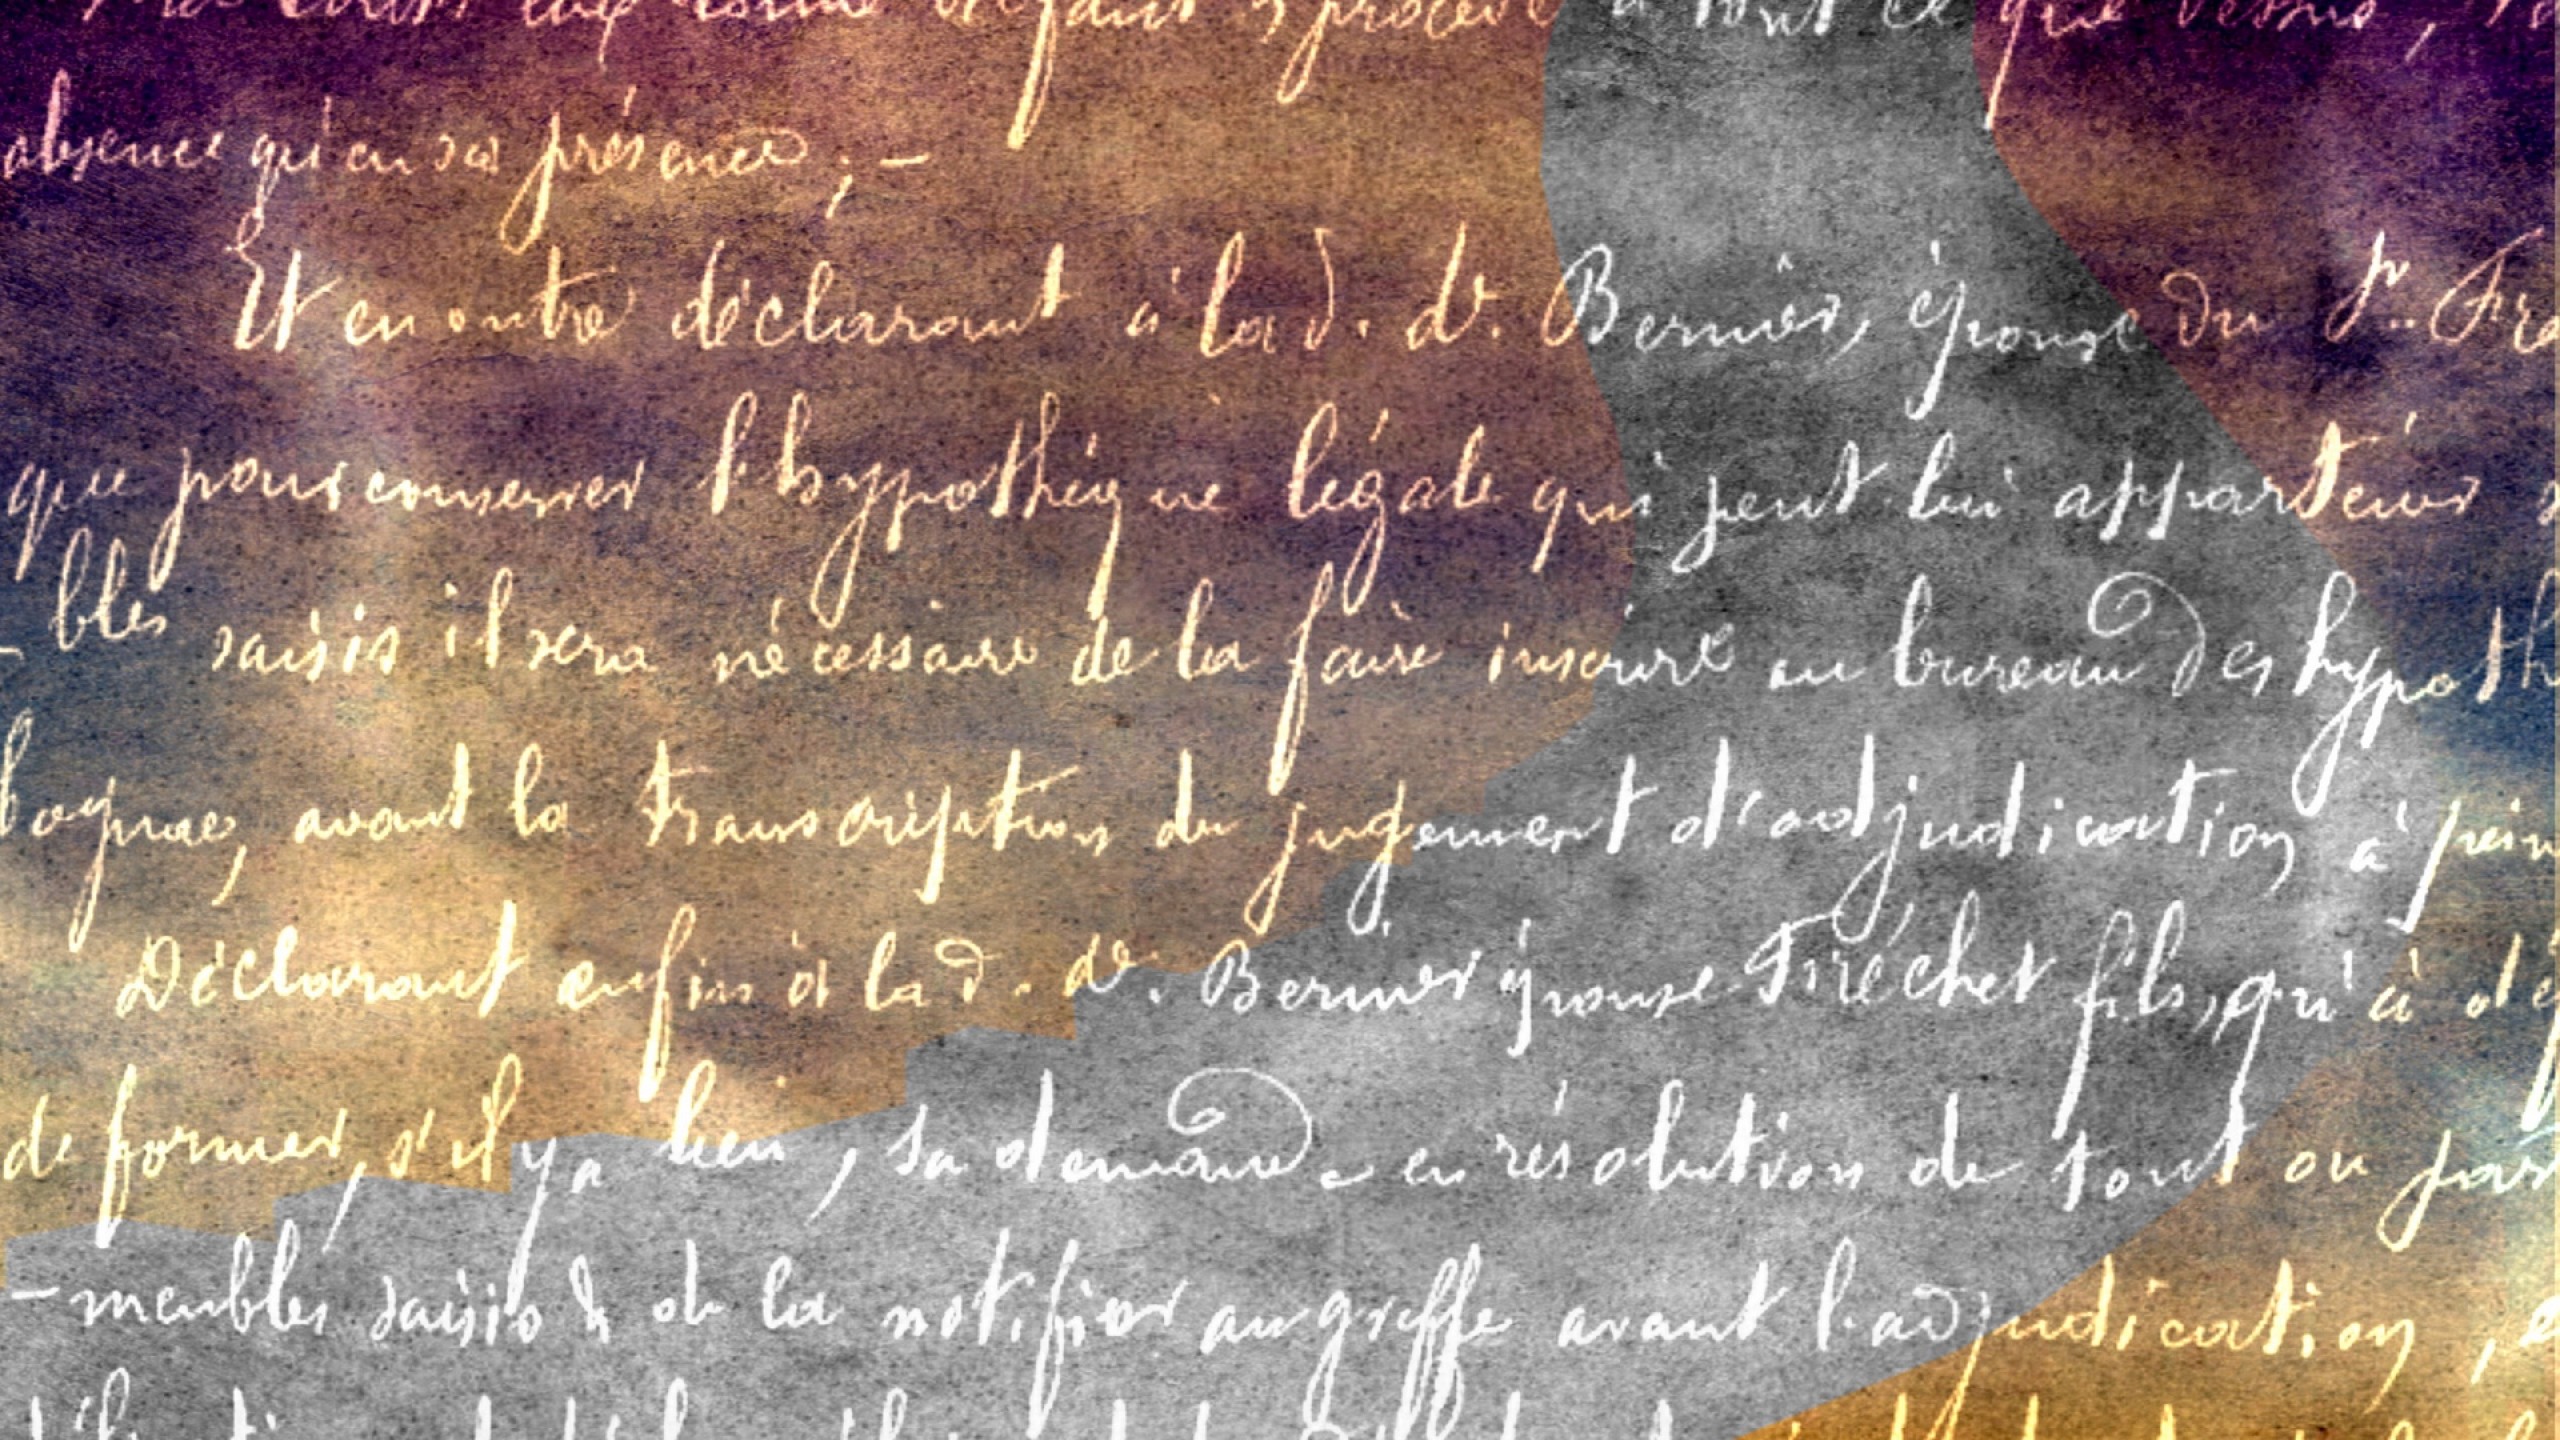 défaut, procédé à tout ce que dessus,
absence qu'en sa présence ; -
Et en outre déclarant à la d. de. Bernier, épouse du Sr. Fré
que pour conserver l'hypothèque légale qui peut lui appartenir
- bles saisis il sera nécessaire de la faire inscrire au bureau des hypoth
avant la transcription du jugement d'adjudication à pein
Déclarant enfin à la d. de. Bernier épouse Fréchet fils, qu'à dé
de former, s'il y a lieu, sa demande en résolution de tout ou par
- meubles saisis & de la notifier au greffe avant l'adjudication,